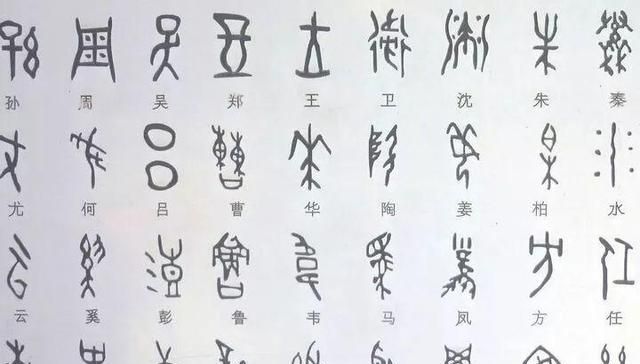 孙 周 吴 郑 王 卫 沈 朱 秦
尤 何 吕 曹 华 陶 姜 柏 水
云 奚 彭 鲁 韦 马 凤 方 任